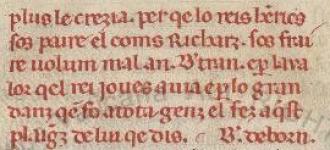 plus le crezia. per qe lo reis henrics
sos paire el coms Richartz. sos frai
re uolum mal an. Bertran. e per la ua
lor qel rei ioues auia e per lo gran
danz qe fo a tota genz el fez aqest
plang de lui qe dis. Bertran de born.